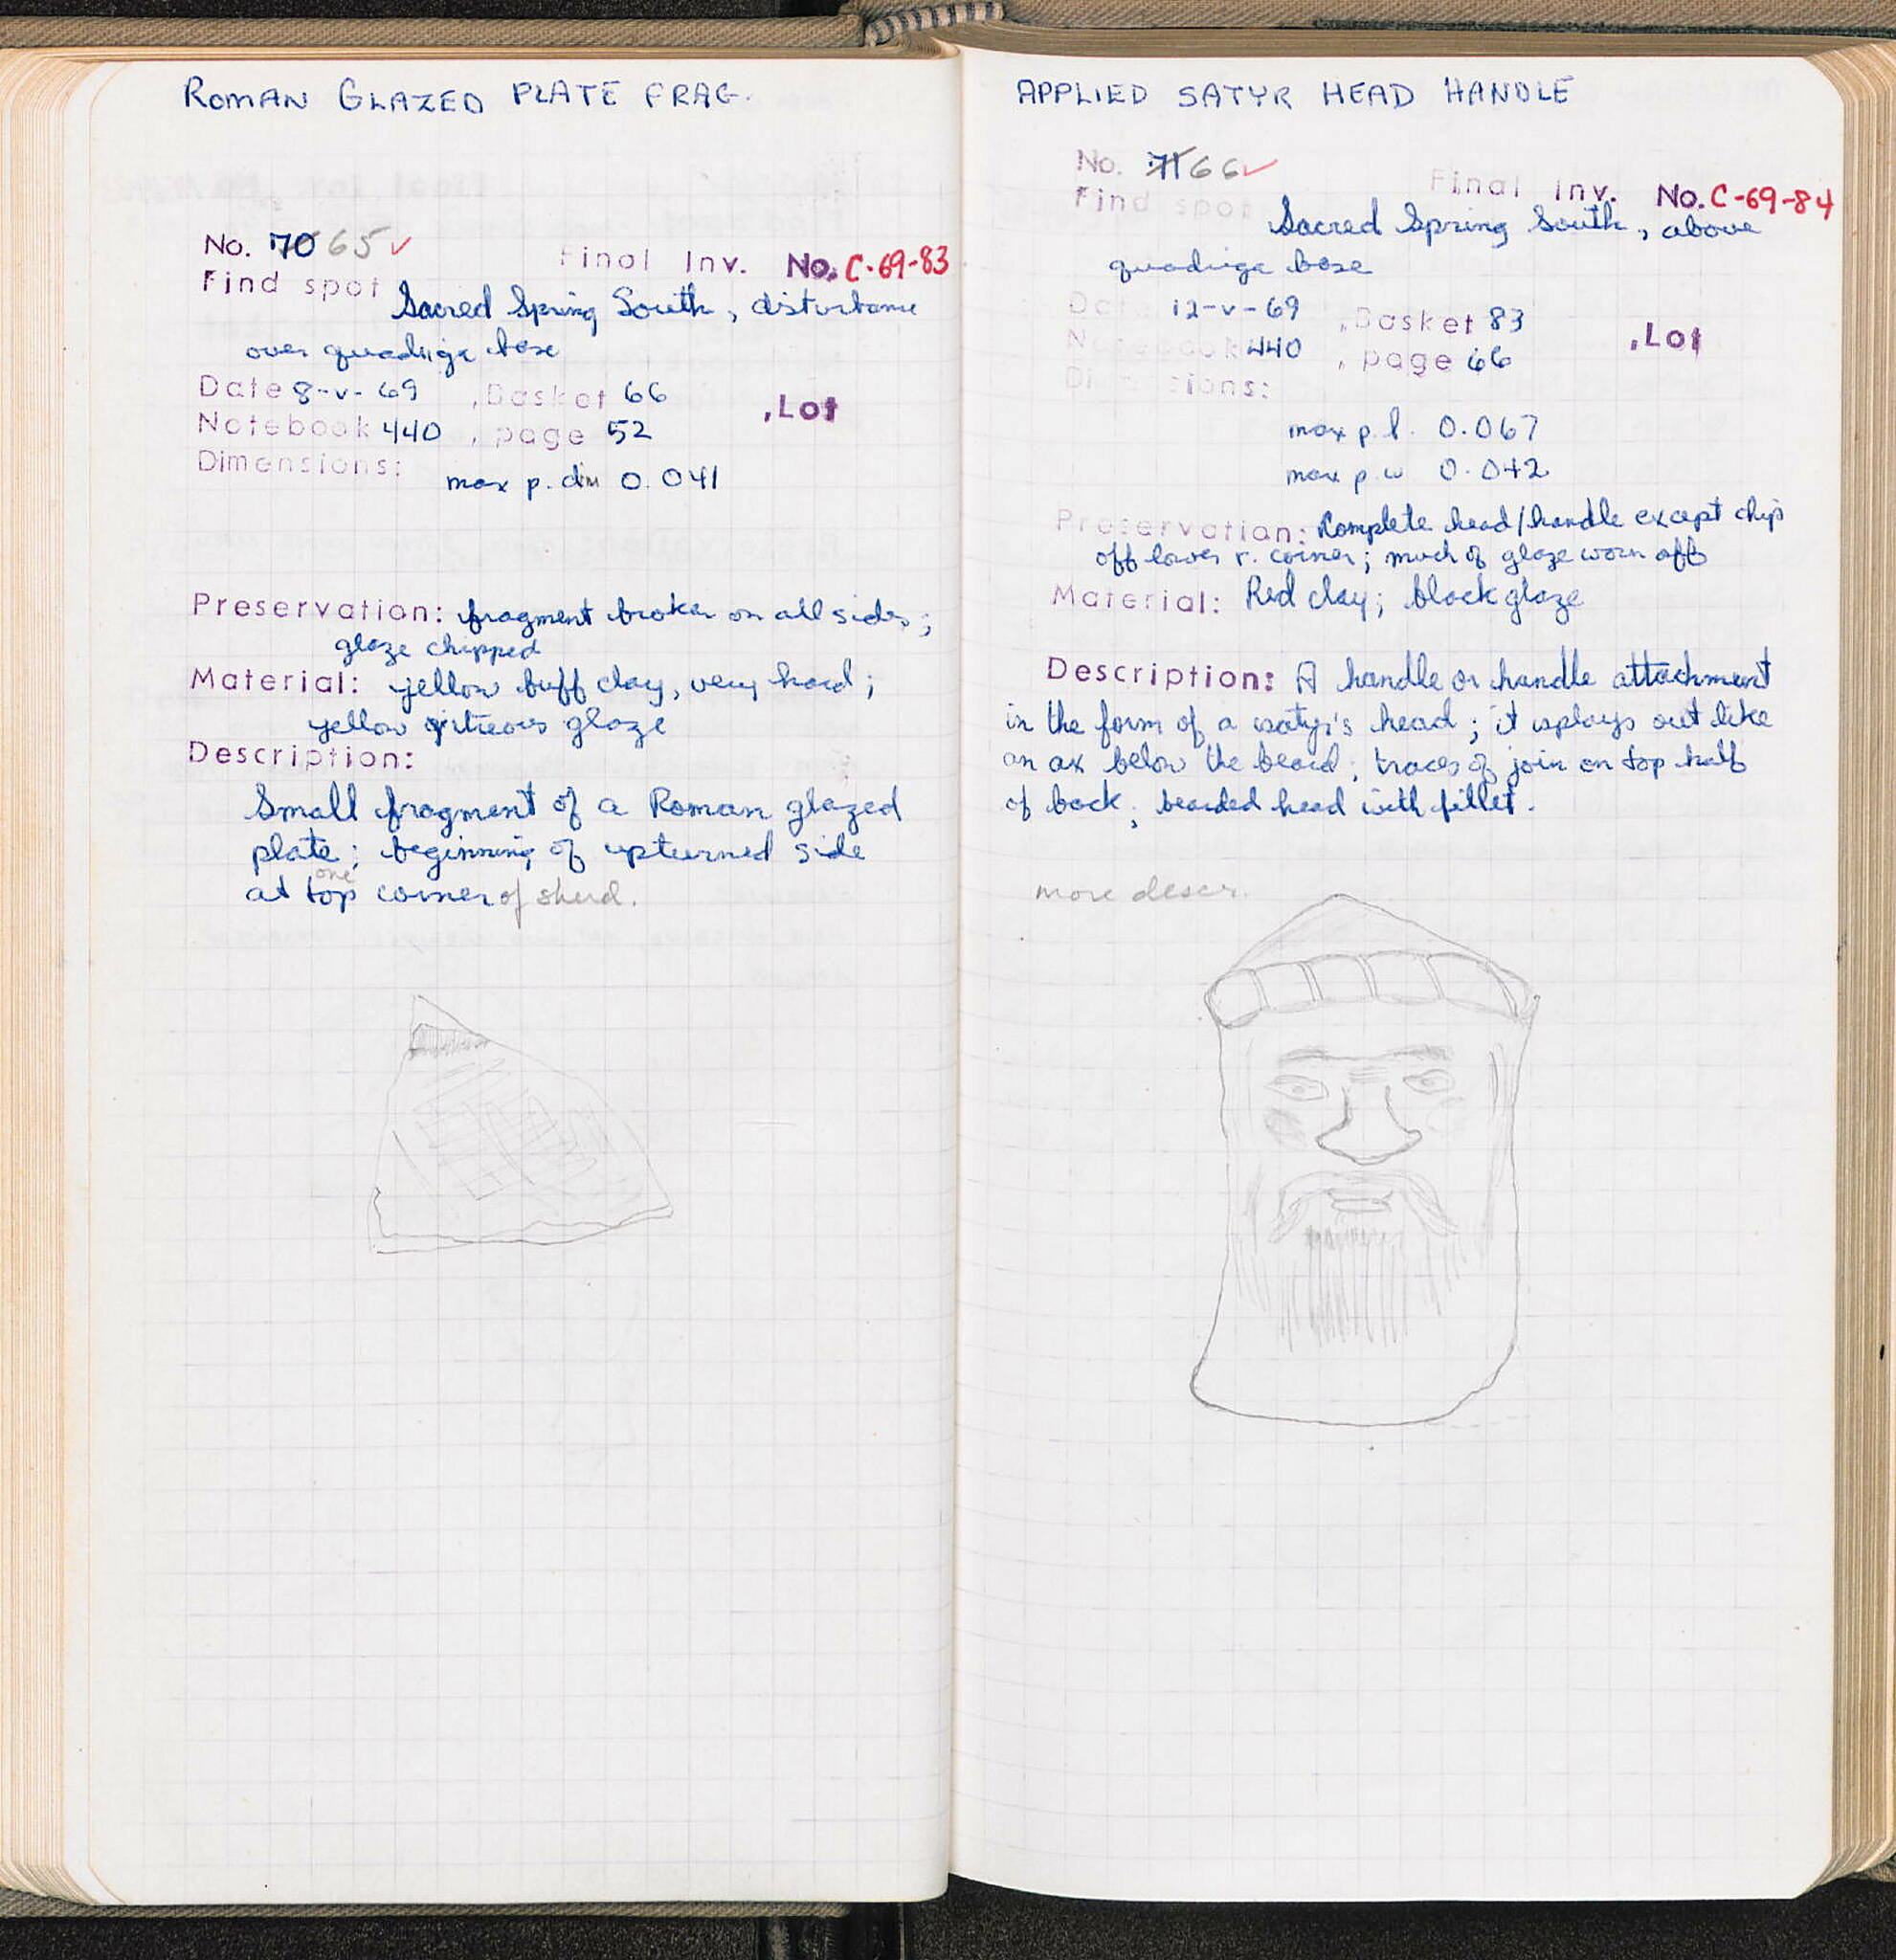 ROMAN GLAZED PLATE FRAG.
No. 70 65 ✓ Final Inv. No. C-69-83
Find spot Sacred Spring South, disturbance
over quadriga base
Date 8-v-69 , Basket 66 , Lot
Notebook 440 , page 52
Dimensions: max p. dim 0.041
Preservation: fragment broken on all sides;
glaze chipped
Material: yellow buff clay, very hard;
yellow vitreous glaze
Description:
Small fragment of a Roman glazed
plate; beginning of upturned side
one
at top corner of sherd.
APPLIED SATYR HEAD HANDLE
No. 71 66 ✓ Final Inv. No. C-69-84
Find spot Sacred Spring South, above
quadriga base
Date 12-v-69 , Basket 83 , Lot
Notebook 440 , page 66
Dimensions:
max p. l. 0.067
max p. w 0.042
Preservation: Complete head/handle except chip
off lower r. corner; much of glaze worn off
Material: Red clay; black glaze
Description: A handle or handle attachment
in the form of a satyr's head; it splays out like
an ax below the beard; traces of join on top half
of back; bearded head with fillet.
more descr.